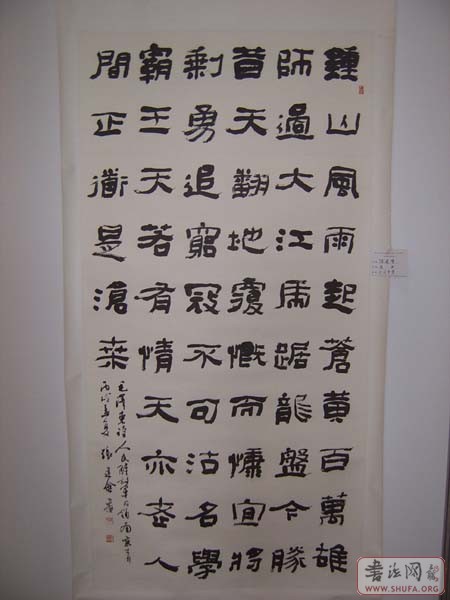 鍾山風雨起蒼黄百萬雄
師過大江虎踞龍盤今勝
昔天翻地覆慨而慷宜將
剩勇追窮寇不可沽名學
霸王天若有情天亦老人
間正道是滄桑
毛澤東詩人民解放軍占領南京
丙戌孟夏張建會書
书法网
WWW.SHUFA.ORG